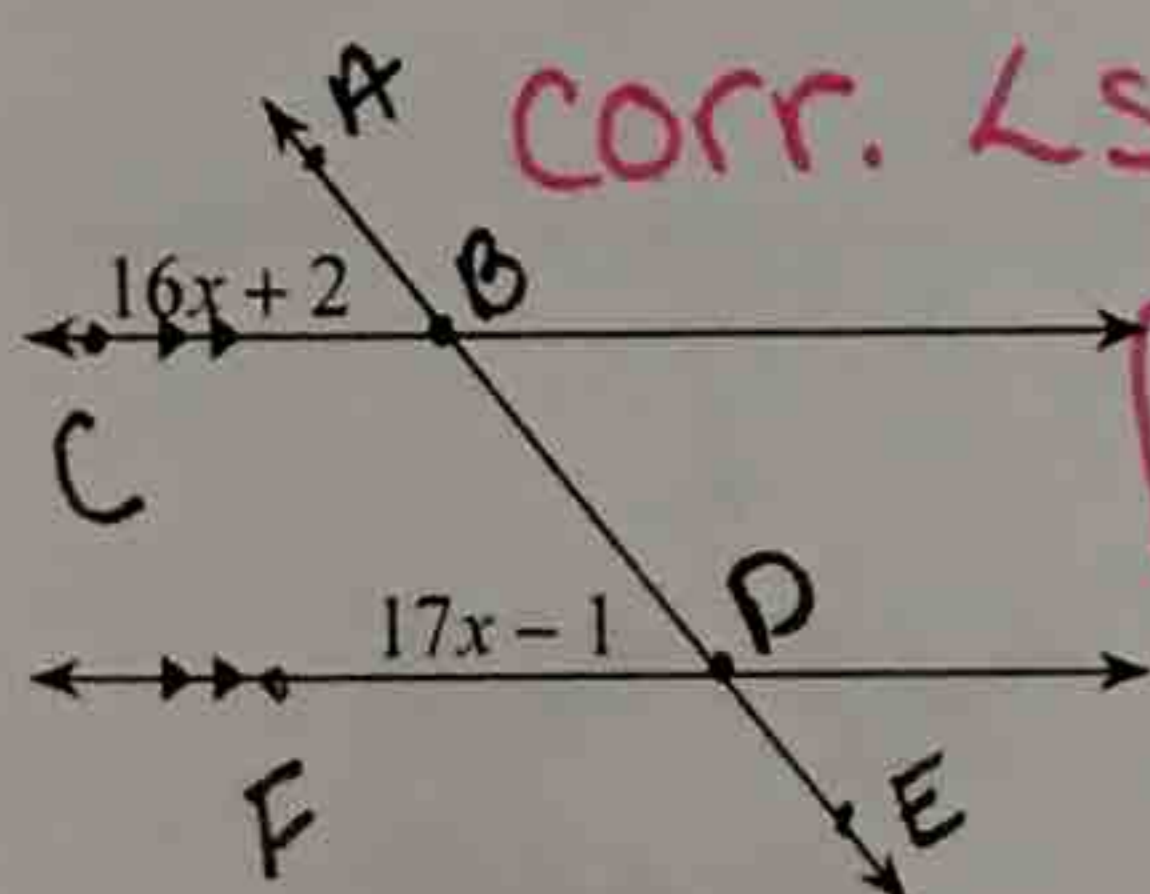 A
Corr. ∠s
16x + 2
B
C
17x − 1
D
F
E